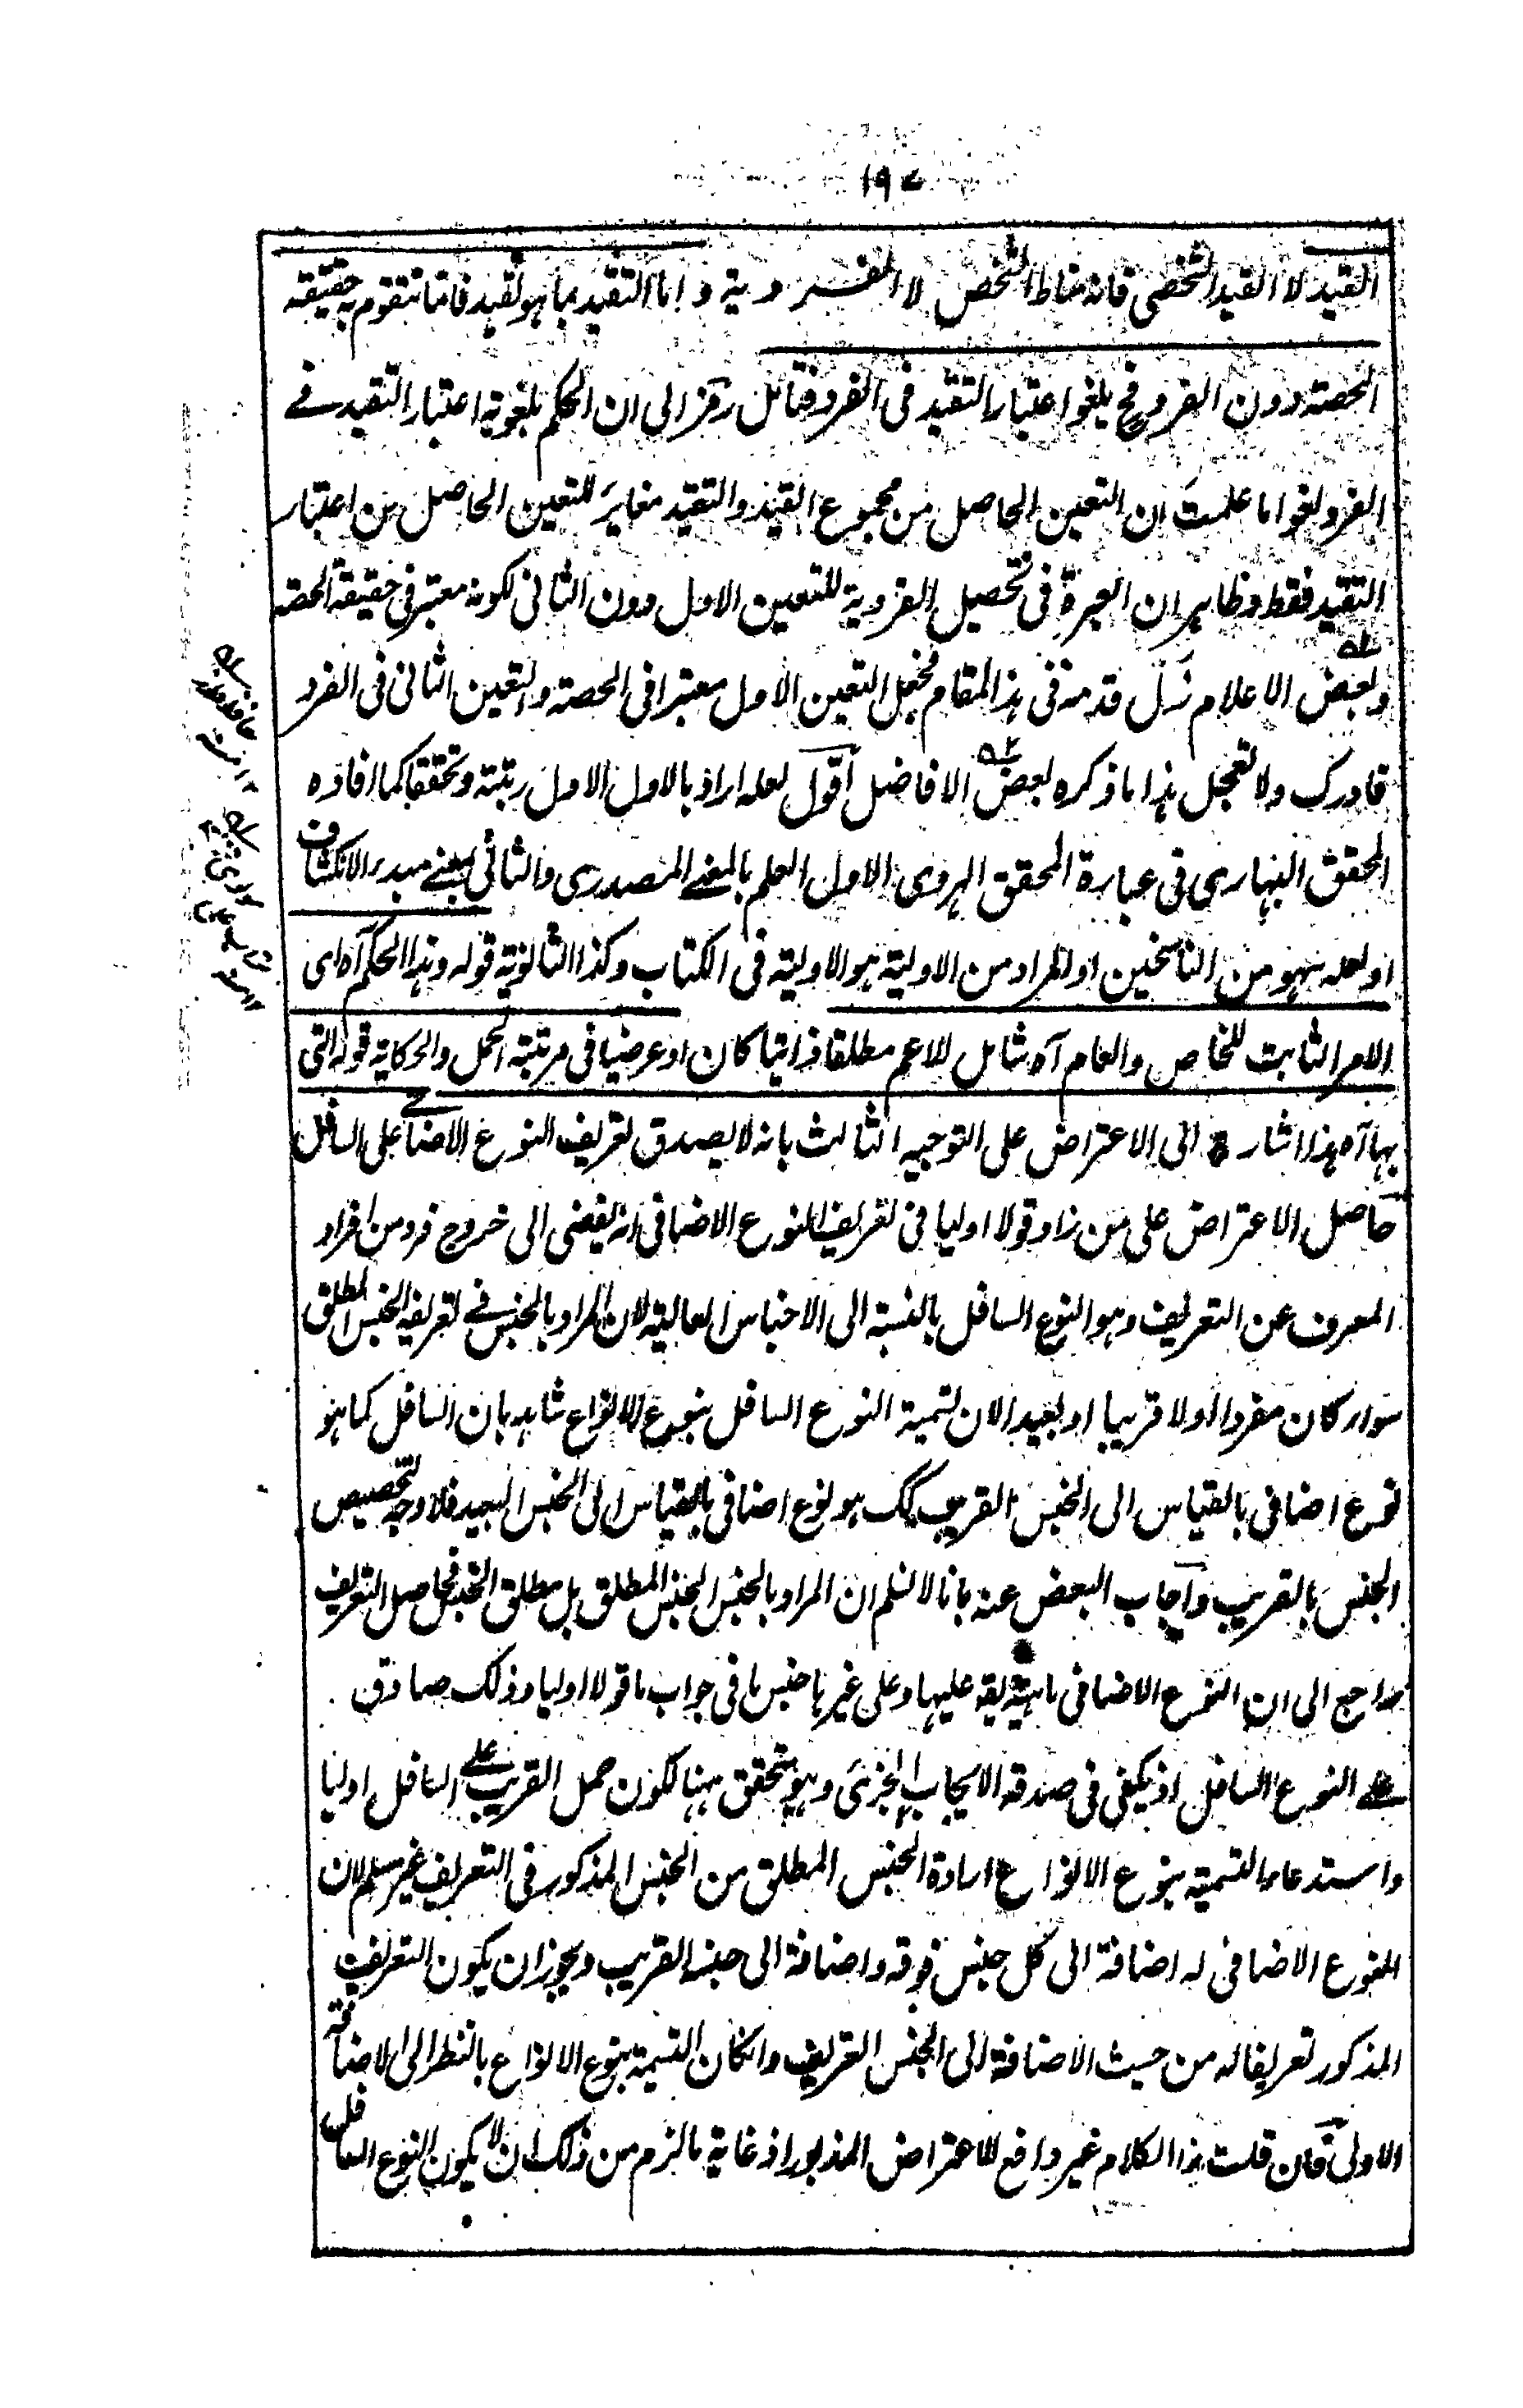 ١٩٧
القيد لا القيد الشخصى فانه مناط الشخص لا الفردية و اما التقيد بما هو تقيد فانما تتقوم به حقيقة
الحصة دون الفرد فح يلغو اعتبار التقيد فى الفرد فتامل رمز الى ان الحكم بلغوية اعتبار التقيد فے
الفرد لغو اما علمت ان التعين الحاصل من مجموع القيد والتقيد مغاير للتعين الحاصل من اعتبار
التقيد فقط وظاهر ان العبرة فى تحصيل الفردية للتعين الاول دون الثانى لكونه معتبر فى حقيقة الحصة
وبعض الاعلام زل قدمه فى هذا المقام فجعل التعين الاول معتبرا فى الحصة والتعين الثانى فى الفرد
فادرك ولا تعجل هذا ما ذكره بعض الافاضل اقول لعله اراد بالاول الاول رتبة وتحققا كما افاده
المحقق البهارى فى عبارة المحقق الهروى الاول العلم بالمعنے المصدرى والثانى بمعنے مبدء الانكشاف
او لعله سهو من الناسخين او المراد من الاولية هو الاولية فى الكتاب وكذا الثانوية قوله وهذا الحكم آه اى
الامر الثابت للخاص والعام آه شامل للاعم مطلقا ذاتيا كان او عرضيا فى مرتبة الحمل والحكاية قوله التى
بها آه هذا اشارة الى الاعتراض على التوجيه الثالث بانه لا يصدق تعريف النوع الاضافے على السافل
حاصل الاعتراض على من زاد قولا اوليا فى تعريف النوع الاضافى انه يفضى الى خروج فرد من افراد
المعرف عن التعريف وهو النوع السافل بالنسبة الى الاجناس العالية لان المراد بالجنس فے تعريفه الجنس المطلق
سواء كان مفردا اولا قريبا او بعيدا لان تسمية النوع السافل بنوع الانواع شاهد بان السافل كما هو
نوع اضافى بالقياس الى الجنس القريب كك هو نوع اضافى بالقياس الى الجنس البعيد فلا وجه لتخصيص
الجنس بالقريب واجاب البعض عنه بانا لا نسلم ان المراد بالجنس الجنس المطلق بل مطلق الجنس فحاصل التعريف
راجع الى ان النوع الاضافى ماهية يقه عليها وعلى غيرها جنس ما فى جواب ما قولا اوليا وذلك صادق
علے النوع السافل اذ يكفى فى صدقه الايجاب الجزئى وهو متحقق ههنا لكون حمل القريب علے السافل اوليا
واستدعاء التسمية بنوع الانواع ارادة الجنس المطلق من الجنس المذكور فى التعريف غير مسلم لان
النوع الاضافى له اضافة الى كل جنس فوقه واضافة الى جنسه القريب ويجوز ان يكون التعريف
المذكور تعريفا له من حيث الاضافة الى الجنس القريب وانكان التسمية بنوع الانواع بالنظر الى الاضافة
الاولى فان قلت هذا الكلام غير دافع للاعتراض المذبور اذ غاية ما لزم من ذلك ان لا يكون النوع السافل